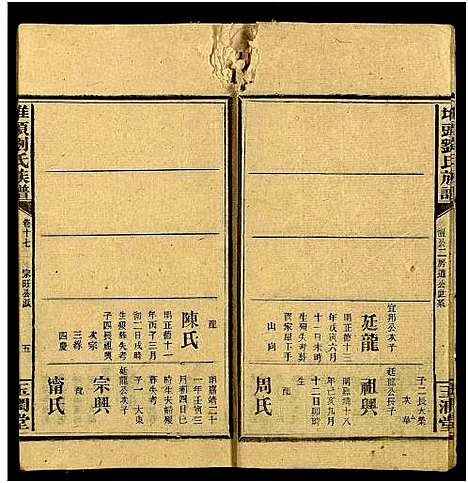 堆頭劉氏族譜
道公世系
玉潤堂
廷龍
宜邦公次子
明正德十一
年戊寅六月
十一日未時
生歿失考葬
西家屋下手
山向
子二長大榮
次華
祖興
廷龍公長子
明弘十八
年己亥九月
十三日卯時
周氏
龍
陳氏
明正德十一
年丙子三月
初二日戌時
生歿葬失考
子四長祖興
次宗
三尋
四慶
明嘉靖二十
一年壬寅三
月初四日巳
時生夫婦歿
葬失考
子一大東
宗興
廷龍公次子
甯氏
堆頭劉氏族譜
卷十七
宗旺公派
五
玉潤堂